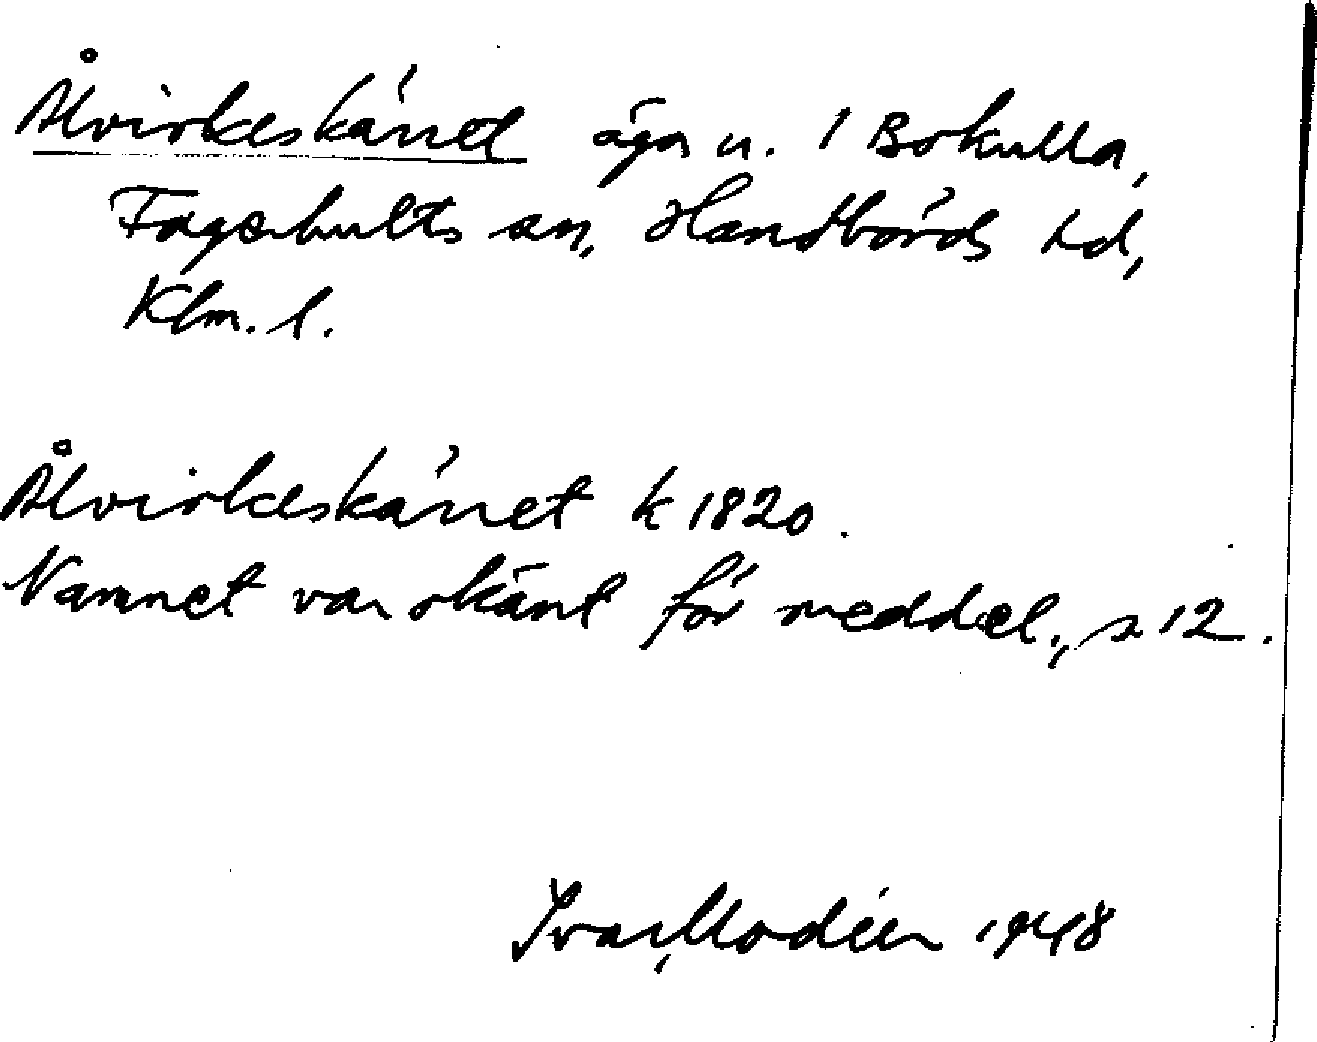 Ålvirkeskärret äga u. 1 Bokulla,
Fagerhults sn, Handbörds hd,
Klm. l.
Ålvirkeskärret k 1820.
Namnet var okänt för meddel., s 12.
Ivar Modéer 1948